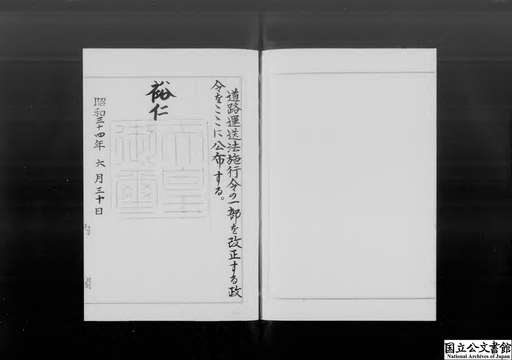 道路運送法施行令の一部を改正する政
令をここに公布する。
裕仁
天皇
御璽
昭和三十四年六月三十日
国立公文書館
National Archives of Japan